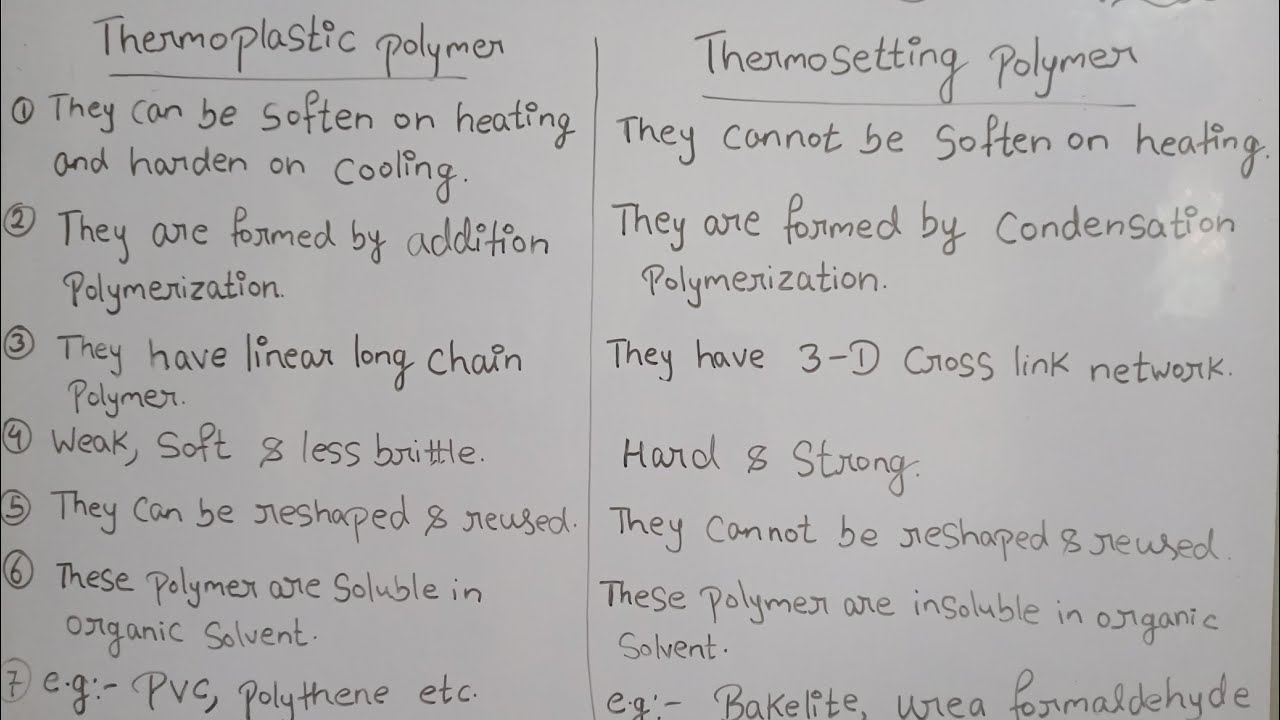 Thermoplastic polymer
① They can be soften on heating
and harden on cooling.
② They are formed by addition
Polymerization.
③ They have linear long chain
Polymer.
④ Weak, Soft & less brittle.
⑤ They can be reshaped & reused.
⑥ These polymer are soluble in
organic solvent.
⑦ e.g:- PVC, polythene etc.
Thermosetting Polymer
They cannot be soften on heating.
They are formed by Condensation
Polymerization.
They have 3-D Cross link network.
Hard & Strong.
They cannot be reshaped & reused.
These polymer are insoluble in organic
Solvent.
e.g:- Bakelite, urea formaldehyde